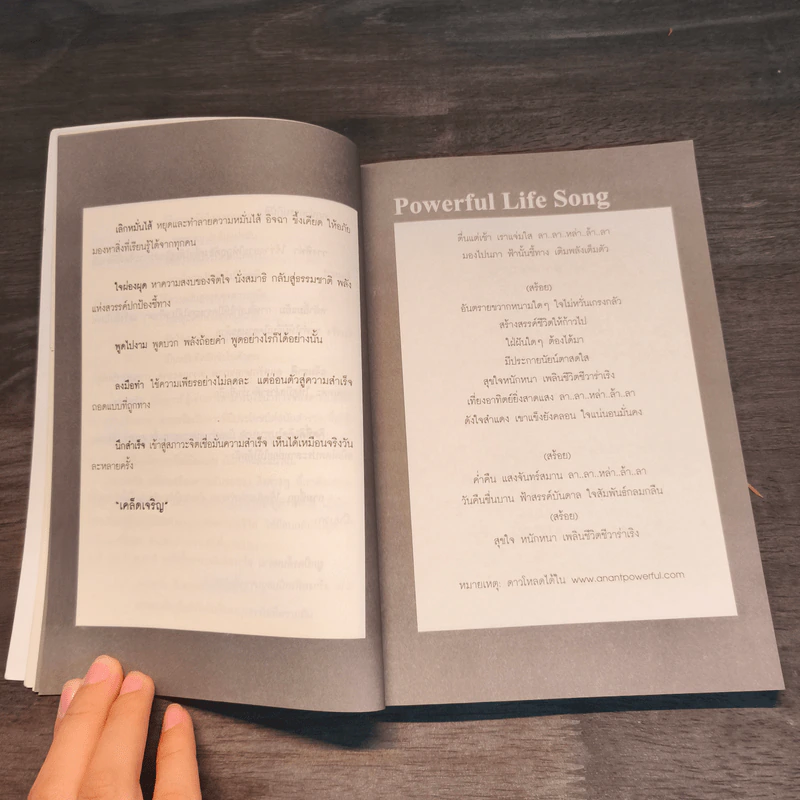 เลิกหมั่นไส้ หยุดและทำลายความหมั่นไส้ อิจฉา ขึ้งเคียด ให้อภัย
มองหาสิ่งที่เรียนรู้ได้จากทุกคน
ใจผ่องผุด หาความสงบของจิตใจ นั่งสมาธิ กลับสู่ธรรมชาติ พลัง
แห่งสวรรค์ปกป้องชี้ทาง
พูดไปงาม พูดบวก พลังถ้อยคำ พูดอย่างไรก็ได้อย่างนั้น
ลงมือทำ ใช้ความเพียรอย่างไม่ลดละ แต่อ่อนตัวสู่ความสำเร็จ
ถอดแบบที่ถูกทาง
นึกสำเร็จ เข้าสู่สภาวะจิตเชื่อมั่นความสำเร็จ เห็นได้เหมือนจริงวัน
ละหลายครั้ง
"เคล็ดเจริญ"
Powerful Life Song
ตื่นแต่เช้า เราแจ่มใส ลา..ลา..หล่า..ล้า..ลา
มองไปนภา ฟ้านั้นชี้ทาง เติมพลังเต็มตัว
(สร้อย)
อันตรายขวากหนามใดๆ ใจไม่หวั่นเกรงกลัว
สร้างสรรค์ชีวิตให้ก้าวไป
ใฝ่ฝันใดๆ ต้องได้มา
มีประกายนัยน์ตาสดใส
สุขใจหนักหนา เพลินชีวิตชีวาร่าเริง
เที่ยงอาทิตย์ยิ่งสาดแสง ลา..ลา..หล่า..ล้า..ลา
ดังใจสำแดง เขาแข็งยังคลอน ใจแน่นอนมั่นคง
(สร้อย)
ค่ำคืน แสงจันทร์สมาน ลา..ลา..หล่า..ล้า..ลา
วันคืนชื่นบาน ฟ้าสรรค์บันดาล ใจสัมพันธ์กลมกลืน
(สร้อย)
สุขใจ หนักหนา เพลินชีวิตชีวาร่าเริง
หมายเหตุ: ดาวโหลดได้ใน www.anantpowerful.com